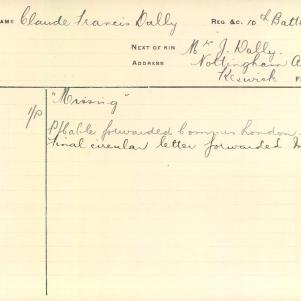 NAME Claude Francis Dally REG &C. 10th Batt
NEXT OF KIN Mr J. Dally.
ADDRESS Nottingham A
Keswick
"Missing"
P/Cable forwarded London
final circular letter forwarded